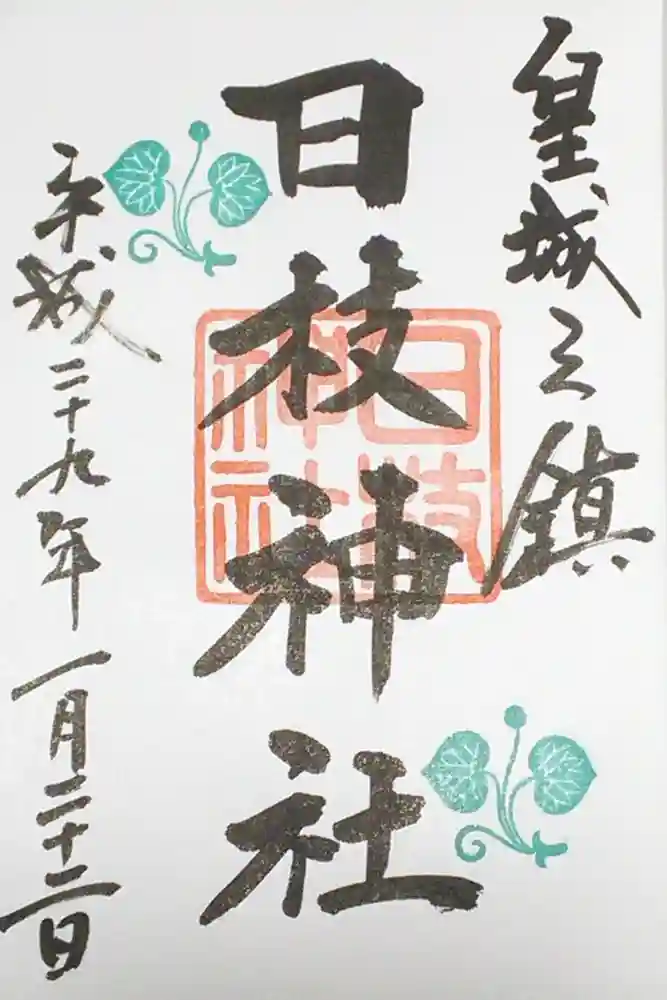 皇城之鎮
日枝神社
日枝
神社
平成二十九年一月二十二日